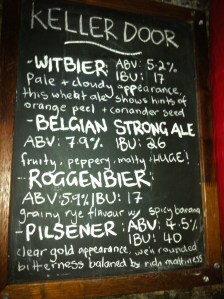 KELLER DOOR
-WITBIER: ABV: 5.2%
IBU: 17
pale + cloudy appearance,
this wheat ale shows hints of
orange peel + coriander seed
-BELGIAN STRONG ALE
ABV: 7.9% IBU: 26
fruity, peppery, malty, HUGE!
-ROGGENBIER:
ABV: 5.9% IBU: 17
grainy rye flavour w/ spicy banana
-PILSENER: ABV: 4.5%
IBU: 40
clear gold appearance, well rounded
bitterness balanced by rich maltiness